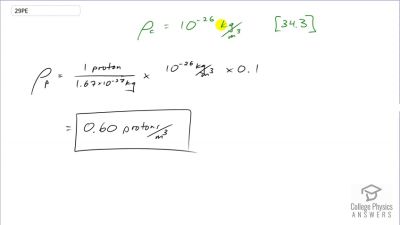 29PE
ρc = 10^-26 kg/m^3 [34.3]
ρp = 1 proton / 1.67×10^-27 kg × 10^-26 kg/m^3 × 0.1
= 0.60 protons/m^3
College Physics
ANSWERS